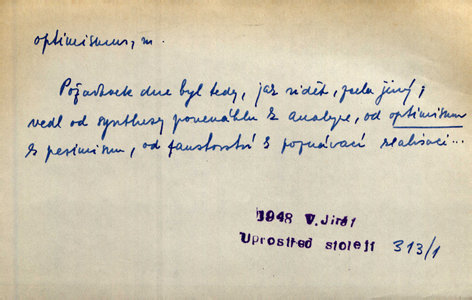 optimismus, m.
Požadavek dne byl tedy, jak vidět, zcela jiný;
vedl od synthesy povenáhlu k analyse, od optimismu
k pesimismu, od faustovství k poznávací realisaci...
1948 V.Jirát
Uprostřed století 313/1